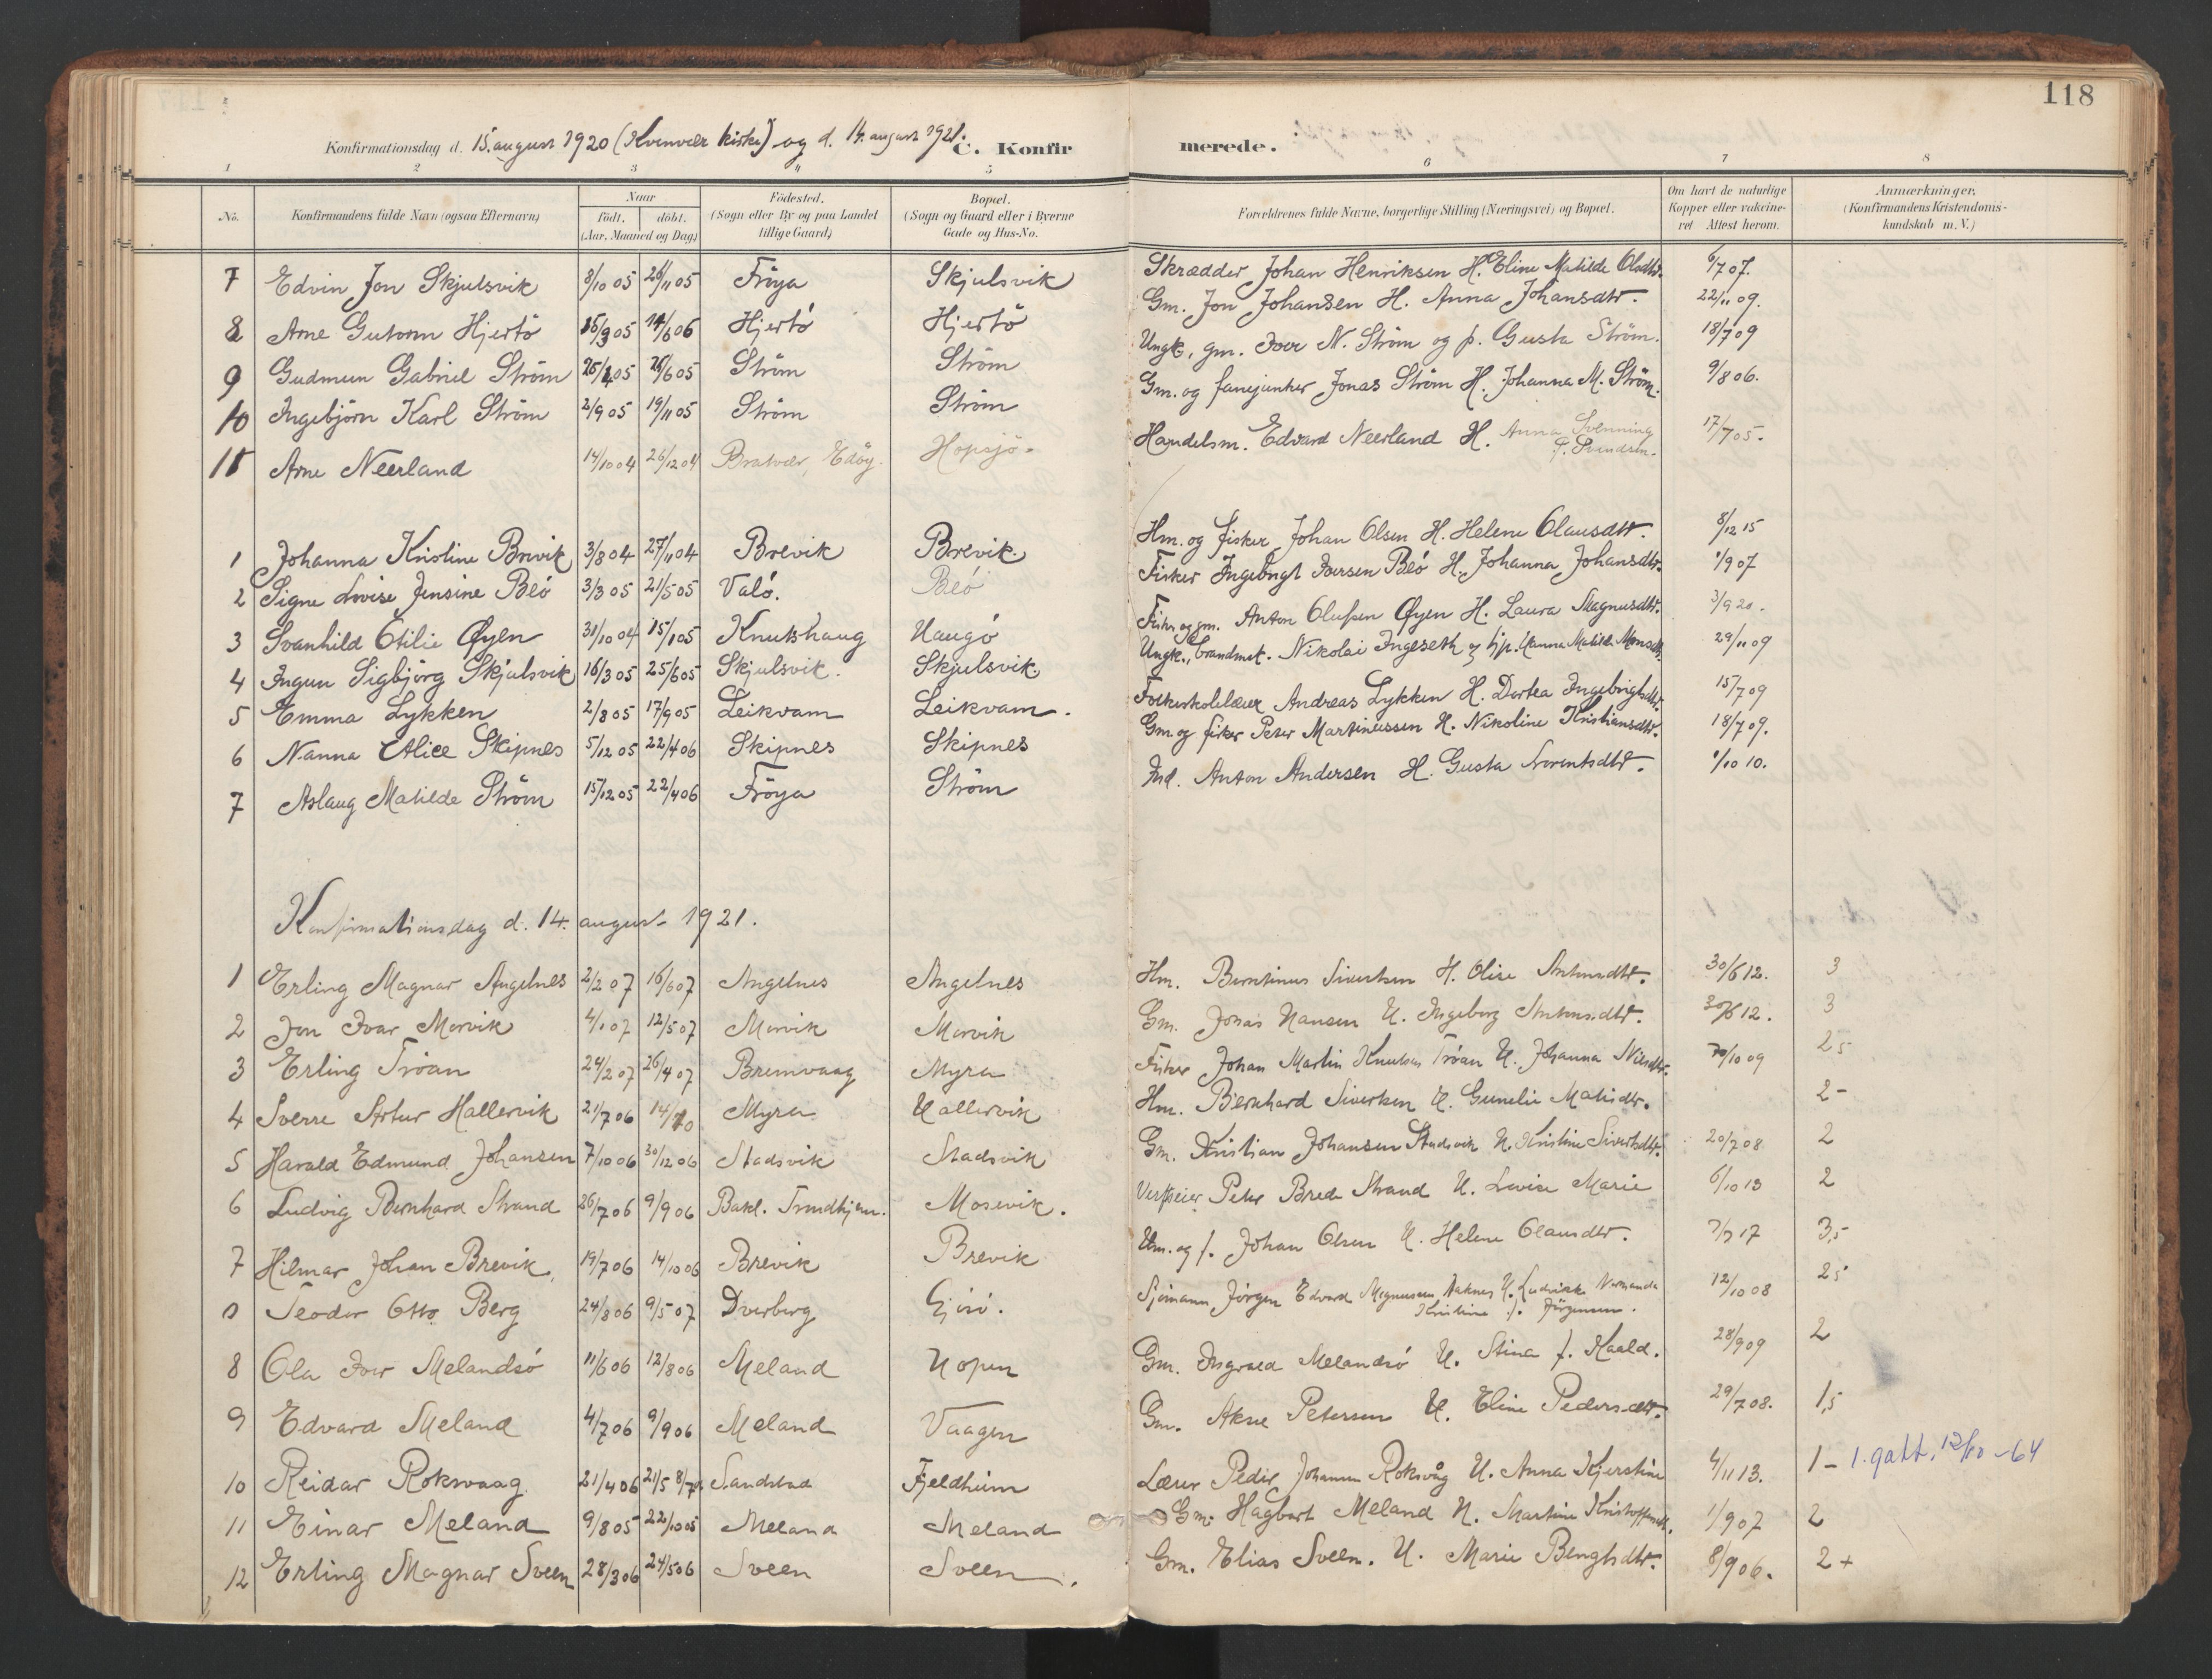 118
Konfirmationsdag d. 15. august 1920 (Kvenvær kirke) og d. 14. august 1921. C. Konfirmerede.
1 2 3 4 5 6 7 8
No. Konfirmandens fulde Navn (ogsaa Efternavn) Naar født, døbt. (Aar, Maaned og Dag) Fødested. (Sogn eller By og paa Landet tillige Gaard) Bopæl. (Sogn og Gaard eller i Byerne Gade og Hus-No. Forældrenes fulde Navne, borgerlige Stilling (Næringsvei) og Bopæl. Om havt de naturlige Kopper eller vakcineret Attest herom. Anmærkninger. (Konfirmandens Kristendomskundskab m. V.)
7 Edvin Jon Skjulsvik 8/10 05 26/11 05 Fröya Skjulsvik Skrædder Johan Henriksen H. Eline Matilde Olsdtr. 6/7 07.
8 Arne Gutorm Hjertö 15/9 05 14/6 06 Hjertö Hjertö Gm. Jon Johansen H. Anna Johansdtr. 22/11 09.
9 Gudmun Gabriel Ström 05 6 05 Ström Ström Ungk, gm. Iver N. Ström og p. Gusta Ström. 18/7 09
10 Ingebjörn Karl Ström 2/9 05 19/11 05 Ström Ström Gm. og fanejunker Jonas Ström H. Johanna M. Ström. 9/8 06.
11 Arne Neerland 14/10 04 26/12 04 Bratvær, Edöy. Hopsjö. Handelsm. Edvard Neerland H. Anna Svenning f. Svendsen. 17/7 05.
1 Johanna Kristine Brevik 3/8 04 27/11 04 Brevik Brevik. Hm. og fisker Johan Olsen H. Helene Olausdtr. 8/12 15
2 Signe Lovise Jensine Beö 3/3 05 21/5 05 Valö. Beö Fisker Ingebrigt Iversen Beö H. Johanna Johansdtr. 1/9 07
3 Svanhild Otilie Øyen 31/10 04 15/1 05 Knutshaug Haugö Fisker og gm. Anton Olufsen Øyen H. Laura Magnusdtr. 3/9 20.
4 Ingun Sigbjörg Skjulsvik 16/3 05 25/6 05 Skjulsvik. Skjulsvik. Ungk., brandmet. Nikolai Ingeseth og tjp. Hanna Matilde Monsdtr. 29/11 09
5 Emma Lykken 2/8 05 17/9 05 Leikvam Leikvam. Folkeskolelærer Andreas Lykken H. Dortea Ingebrigtsdtr. 15/7 09
6 Nanna Alice Skipnes 5/12 05 22/4 06 Skipnes Skipnes Gm. og fisker Peter Martinussen H. Nikoline Kristiansdtr. 18/7 09.
7 Aslaug Matilde Ström 15/12 05 22/4 06 Fröya Ström Ind. Anton Andersen H. Gusta Lorentsdtr. 1/10 10.
Konfirmationsdag d. 14. august 1921.
1 Erling Magnar Angelnes 2/2 07 16/6 07 Angelnes Angelnes Hm. Berntinus Sivertsen H. Olise Antonsdtr. 30/6 12. 3
2 Jon Ivar Morvik 4/1 07 12/5 07 Morvik Morvik Gm. Jonas Hansen H. Ingeborg Antonsdtr. 30/6 12. 3
3 Erling Tröan 24/2 07 26/4 07 Bremvaag Myra Fisker Johan Martin Knutsen Tröan H. Johanna Nilsdtr. 10 09 2 5
4 Sverre Artur Hallervik 21/7 06 Myra Hallervik Hm. Bernhard Sivertsen H. Gunelie Matisdtr. 2-
5 Harald Edmund Johansen 7/10 06 30/12 06 Stadsvik Stadsvik Gm. Kristian Johansen Stadsvik H. Kristine Sivertsdtr. 20/7 08 2
6 Ludvig Bernhard Strand 26/7 06 9/9 06 Bakl. Trondhjem. Mosevik. Verkseier Peter Brede Strand H. Lovise Marie 6/10 13 2
7 Hilmar Johan Brevik. 19/7 06 14/10 06 Brevik Brevik Hm. og f. Johan Olsen H. Helene Olausdtr. 7/7 17 3,-
0 Teodor Otto Berg 24/8 06 9/5 07 Dverberg Gjösö. Sjömann Jörgen Edvard Magnussen Aaknes H. Ludvikke Normanda Kristine f. Jörgensen. 12/10 08 2 5
8 Ola Iver Melandsö 11/6 06 12/8 06 Meland Hopen Gm. Ingvald Melandsö H. Stina f. Kaald. 28/9 09 2
9 Edvard Meland 4/7 06 9/9 06 Meland Vaagen Gm. Aksel Petersen H. Eline Pedersdtr. 29/7 08. 1,5
10 Reidar Roksvaag. 21/4 06 21/5 8/7 Sandstad Fjeldheim Lærer Peder Johannes Roksvåg H. Anna Kjerstine 4/11 13. 1- 1. gatt. 12/10 -64
11 Einar Meland 9/8 05 22/10 05 Meland Meland Gm. Hagbart Meland H. Martine Kristoffersdtr. 1/9 07 2
12 Erling Magnar Sveen 28/3 06 24/5 06 Sveen Sveen. Gm. Elias Sveen. H. Marie Bengtsdtr. 8/9 06. 2+